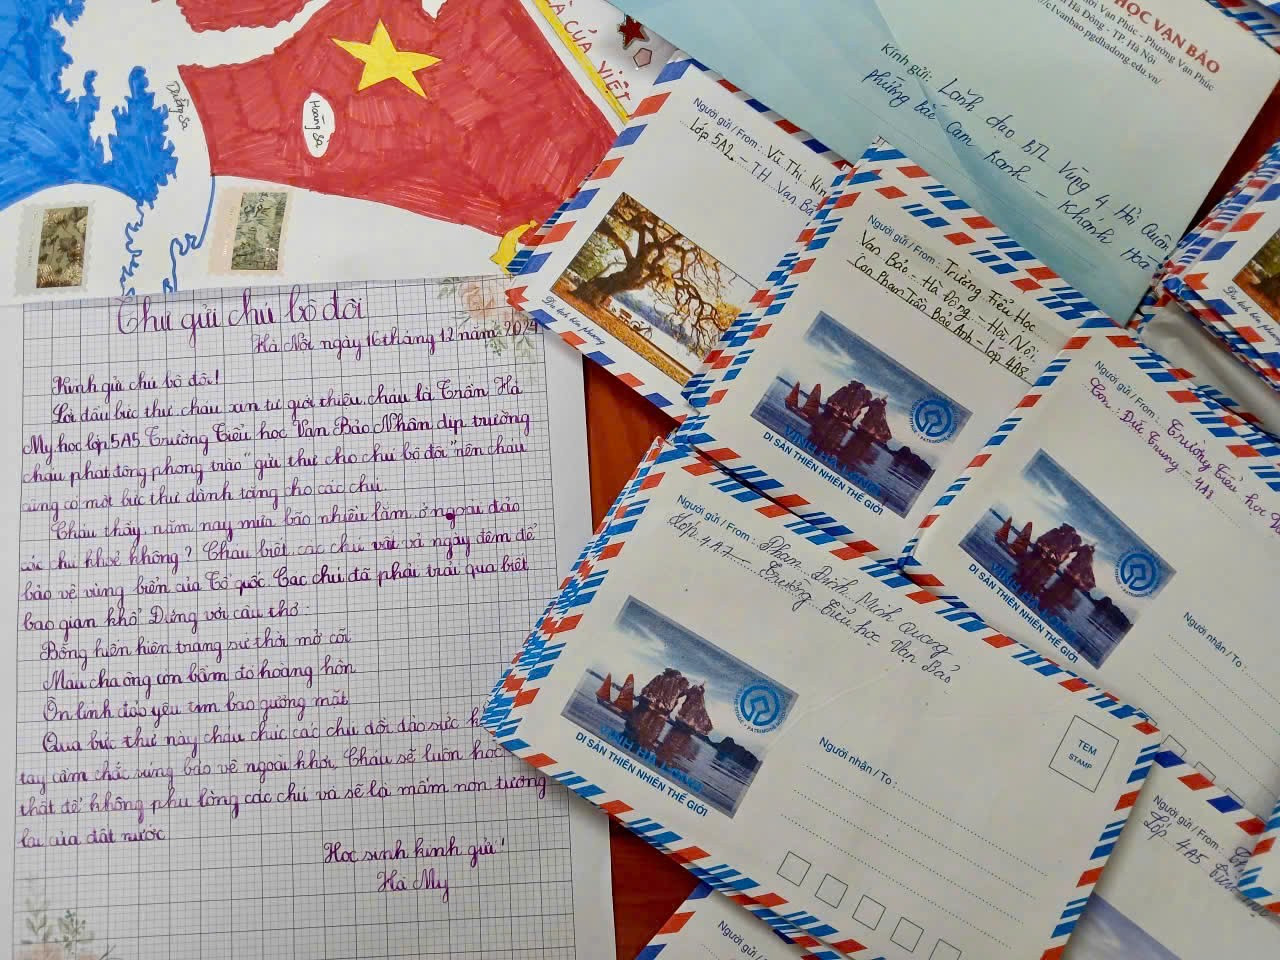 À CỦA VIỆT
Hoàng Sa
Thư gửi chú bộ đội
Hà Nội ngày 16 tháng 12 năm 2024
Kính gửi chú bộ đội!
Lời đầu bức thư cháu xin tự giới thiệu, cháu là Trần Hà
My học lớp 5A5 Trường Tiểu học Vạn Bảo. Nhân dịp trường
cháu phát động phong trào "gửi thư cho chú bộ đội" nên cháu
cũng có một bức thư dành tặng cho các chú.
Cháu thấy năm nay mưa bão nhiều lắm, ở ngoài đảo
các chú khoẻ không? Cháu biết các chú vất vả ngày đêm để
bảo vệ vùng biển của Tổ quốc. Các chú đã phải trải qua biết
bao gian khổ. Đúng với câu thơ
Bỗng hiển hiện trang sử thời mở cõi
Máu cha ông còn bầm đỏ hoàng hôn
Ơn linh đảo yêu tim bao gương mặt
Qua bức thư này cháu chúc các chú dồi dào sức
tay cầm chắc súng bảo vệ ngoài khơi. Cháu sẽ luôn học
thật để không phụ lòng các chú và sẽ là mầm non tương
lai của đất nước
Học sinh kính gửi!
Hà My
HỌC VẠN BẢO
Vạn Phúc - Phường Vạn Phúc
Hà Đông - TP. Hà Nội
c1vanbao.pgdhadong.edu.vn/
Kính gửi: Lãnh đạo BTL Vùng 4 Hải Quân
phường bắc Cam Ranh - Khánh Hoà
Người gửi / From: Vũ Thị Kim
Lớp 5A2 - T.H Vạn Bả
Du lịch bốn phương
Người gửi / From: Trường Tiểu Học
Vạn Bảo - Hà Đông - Hà Nội
Con Phạm Trần Bảo Anh - lớp 4A8
VỊNH HẠ LONG
DI SẢN THIÊN NHIÊN THẾ GIỚI
Người gửi / From: Trường Tiểu học
Con: Đức Trung - 4A8
VỊNH HẠ LONG
DI SẢN THIÊN NHIÊN THẾ GIỚI
Người nhận / To:
Người gửi / From: Phạm Đình Minh Quang
Lớp 4A7 - Trường Tiểu học Vạn Bảo
VỊNH HẠ LONG
DI SẢN THIÊN NHIÊN THẾ GIỚI
Người nhận / To:
TEM
STAMP
Người gửi / From:
Lớp 4A5
Người gửi / From: